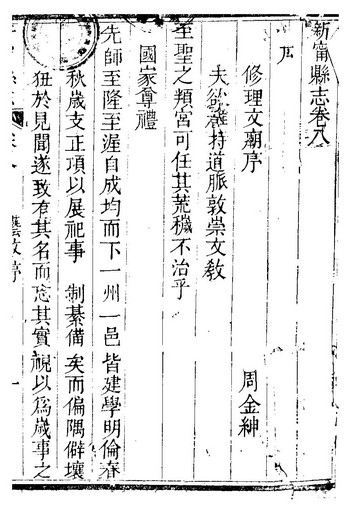 新甯縣志卷八
序
修理文廟序 周金紳
夫欲維持道脈敦崇文教
至聖之頖宮可任其荒穢不治乎
國家尊禮
先師至隆至渥自成均而下一州一邑皆建學明倫春
秋歲支正項以展祀事 制綦備矣而偏隅僻壤
狃於見聞遂致存其名而忘其實視以爲歲事之
藝文序 一